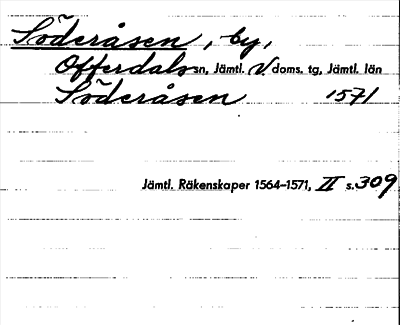 Söderåsen, by,
Offerdals sn, Jämtl. V. doms. tg, Jämtl. län
Söderåsen 1571
Jämtl. Räkenskaper 1564–1571, II s. 309